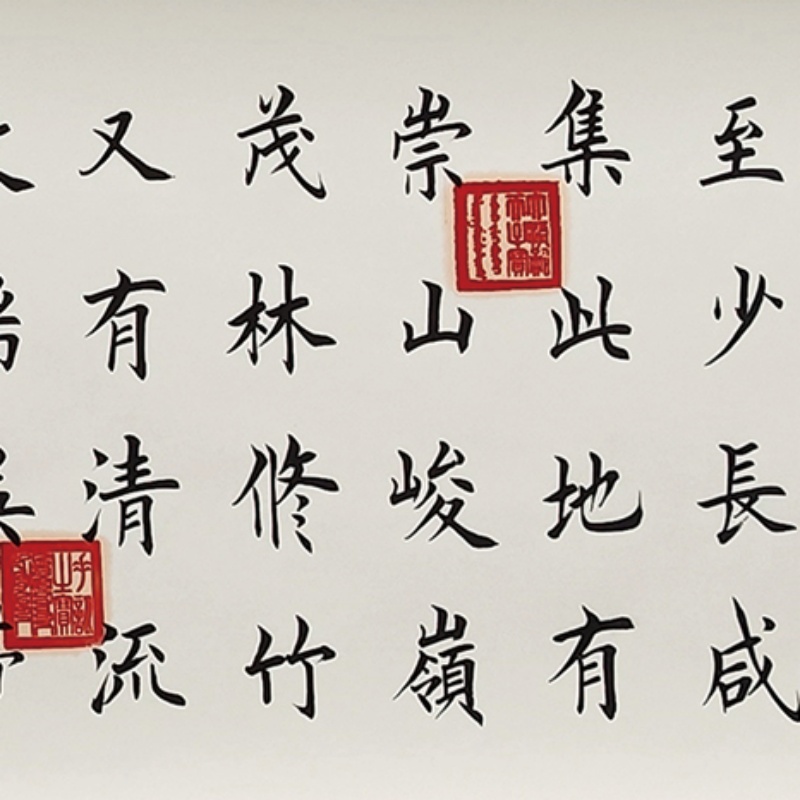 至少長咸
集此地有
崇山峻嶺
茂林修竹
又有清流